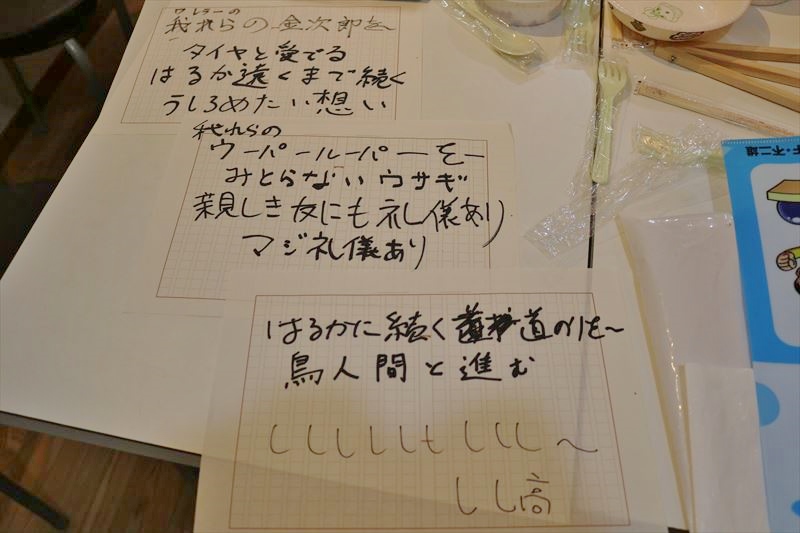 我れらの金次郎を〜
タイヤと愛でる
はるか遠くまで続く
うしろめたい想い
我れらの
ウーパールーパーをー
みとらないウサギ
親しき友にも礼儀あり
マジ礼儀あり
はるかに続く道のりを〜
鳥人間と進む
しししししもししし〜
しし高
不二雄